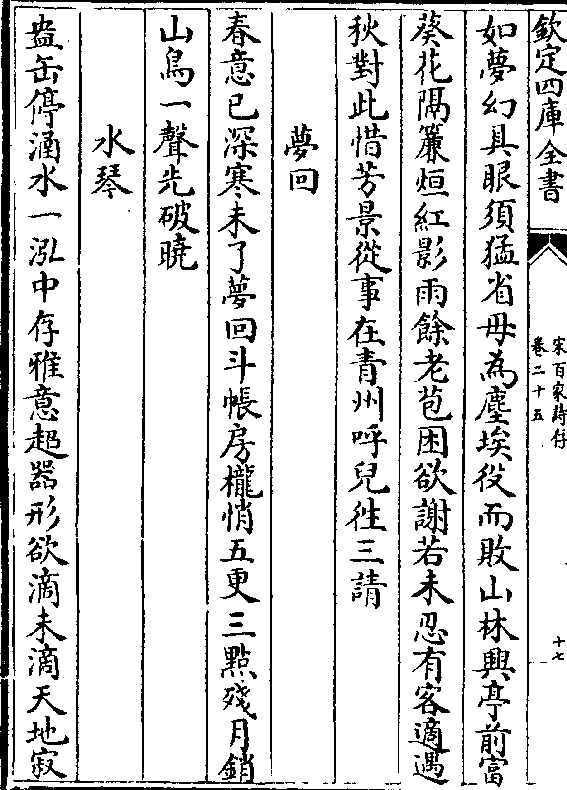 欽定四庫全書
宋百家詩存
卷二十五
十七
如夢幻具眼須猛省毋為塵埃役而敗山林興亭前富
葵花隔簾烜紅影雨餘老苞困欲謝若未忍有客適遇
秋對此惜芳景從事在青州呼兒徃三請
夢回
春意已深寒未了夢回斗帳房櫳悄五更三點殘月銷
山鳥一聲先破曉
水琴
盎缶停涵水一泓中存雅意超器形欲滴未滴天地寂